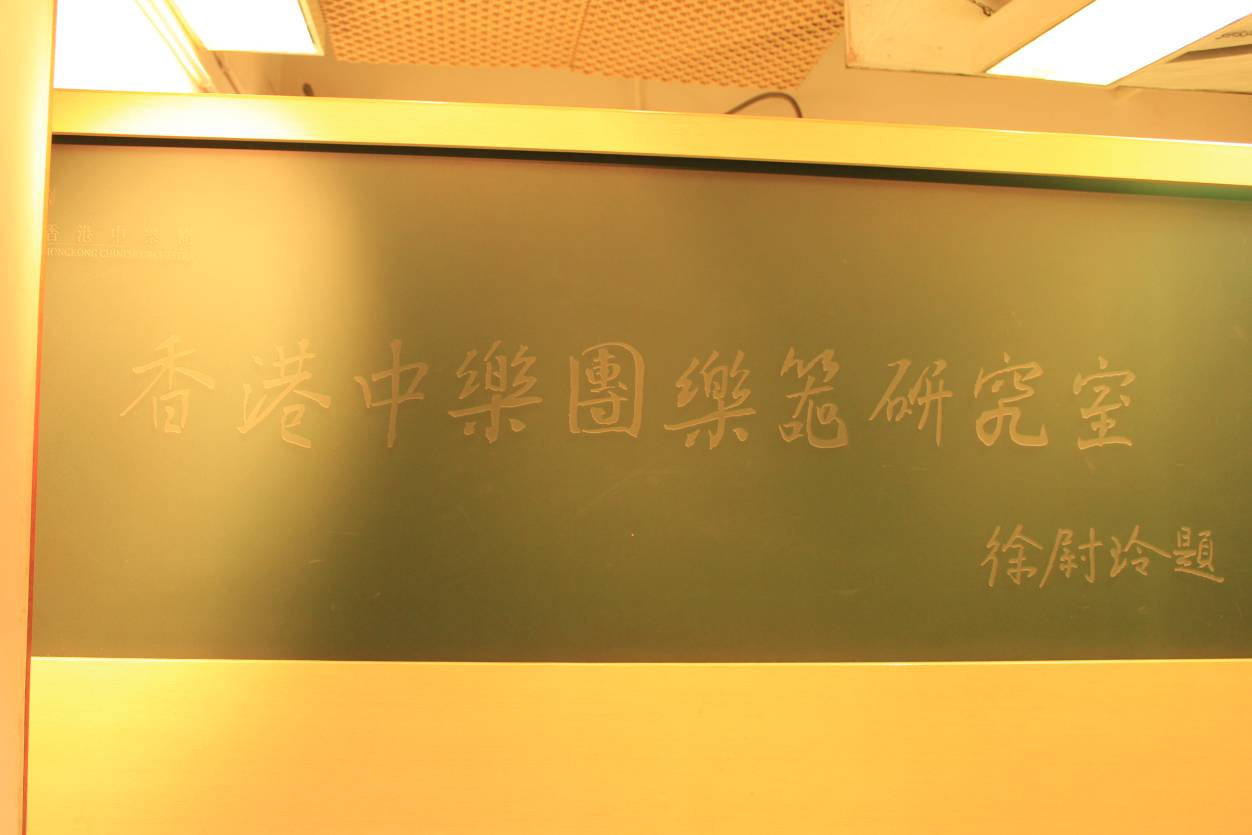 香港中樂團
HONG KONG CHINESE ORCHESTRA
香港中樂團樂噐研究室
徐尉玲題